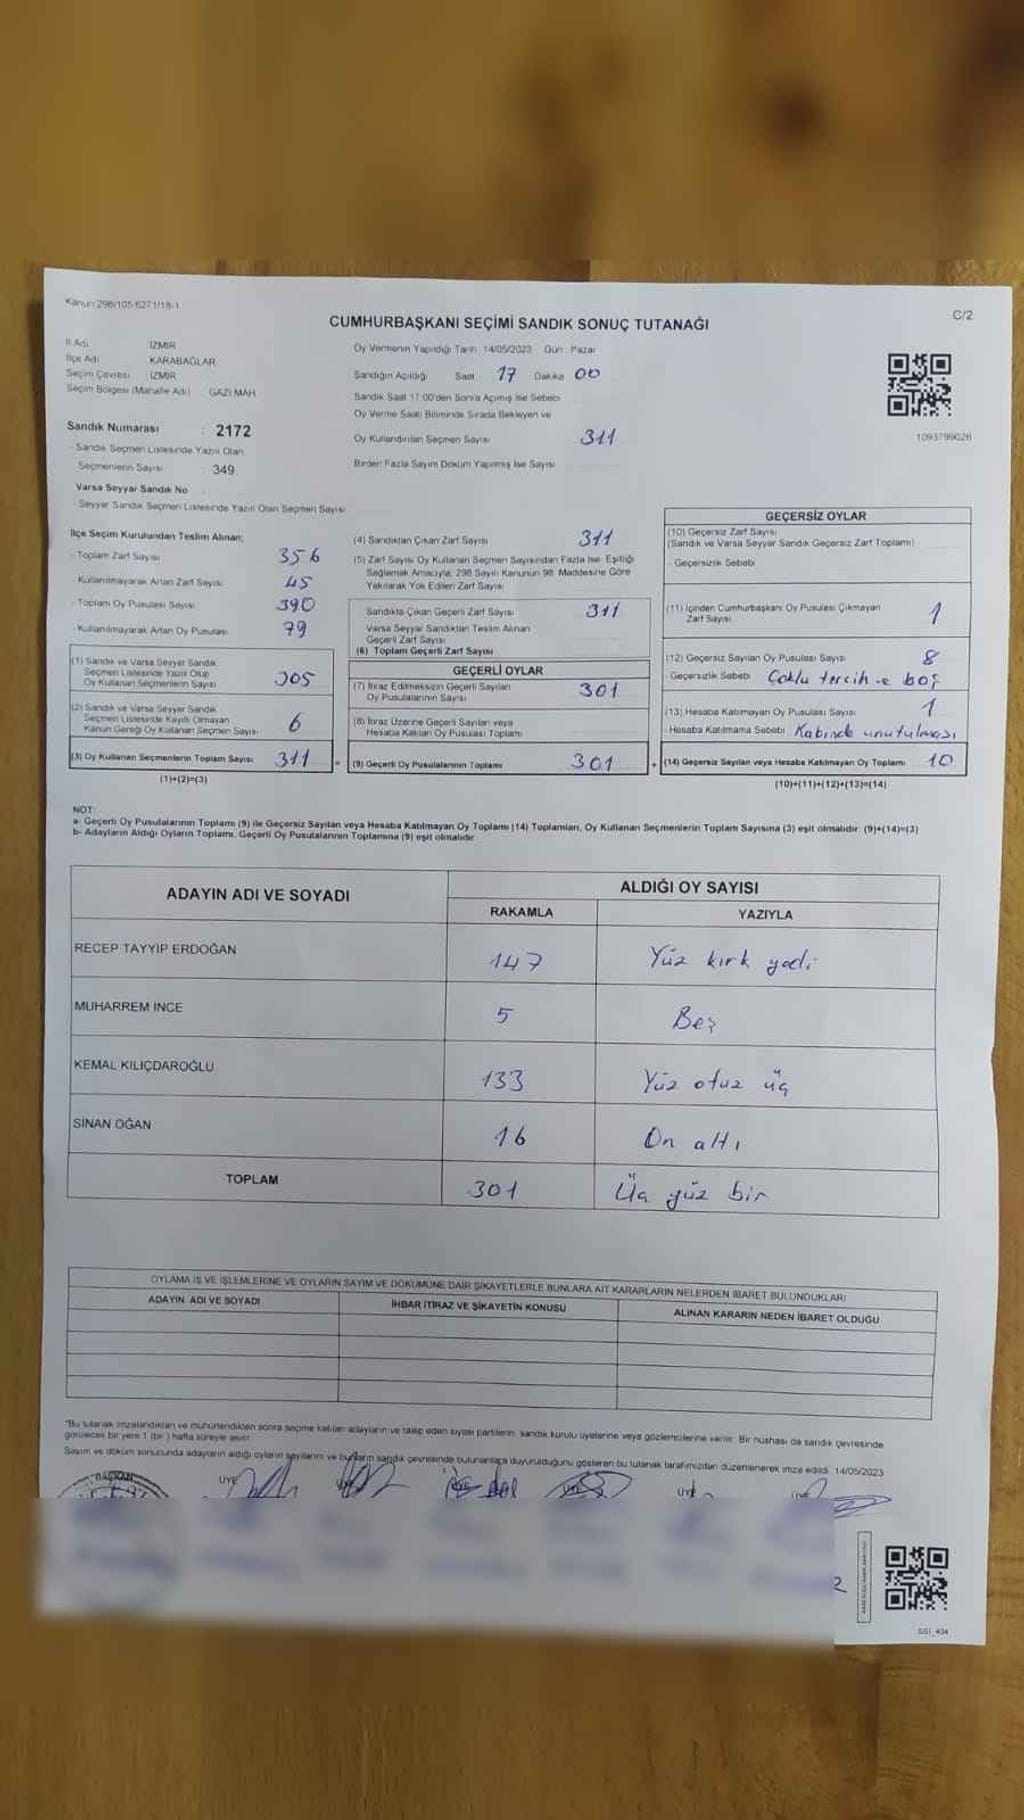 Kanun:298/105.6271/18-1
C/2
CUMHURBAŞKANI SEÇİMİ SANDIK SONUÇ TUTANAĞI
İl Adı İZMİR
İlçe Adı KARABAĞLAR
Seçim Çevresi : İZMİR
Seçim Bölgesi (Mahalle Adı) GAZİ MAH
Sandık Numarası : 2172
- Sandık Seçmen Listesinde Yazılı Olan
Seçmenlerin Sayısı : 349
Varsa Seyyar Sandık No
- Seyyar Sandık Seçmen Listesinde Yazılı Olan Seçmen Sayısı
Oy Vermenin Yapıldığı Tarih : 14/05/2023 Gün : Pazar
Sandığın Açıldığı Saat 17 Dakika 00
Sandık Saat 17:00'den Sonra Açılmış İse Sebebi
Oy Verme Saati Bitiminde Sırada Bekleyen ve
Oy Kullandırılan Seçmen Sayısı 311
Birden Fazla Sayım Döküm Yapılmış İse Sayısı
1093799026
İlçe Seçim Kurulundan Teslim Alınan;
- Toplam Zarf Sayısı 356
- Kullanılmayarak Artan Zarf Sayısı 45
- Toplam Oy Pusulası Sayısı 390
- Kullanılmayarak Artan Oy Pusulası 79
(1) Sandık ve Varsa Seyyar Sandık
Seçmen Listesinde Yazılı Olup
Oy Kullanan Seçmenlerin Sayısı 305
(2) Sandık ve Varsa Seyyar Sandık
Seçmen Listesinde Kayıtlı Olmayan
Kanun Gereği Oy Kullanan Seçmen Sayısı 6
(3) Oy Kullanan Seçmenlerin Toplam Sayısı 311
(1)+(2)=(3)
(4) Sandıktan Çıkan Zarf Sayısı 311
(5) Zarf Sayısı Oy Kullanan Seçmen Sayısından Fazla İse, Eşitliği
Sağlamak Amacıyla, 298 Sayılı Kanunun 98. Maddesine Göre
Yakılarak Yok Edilen Zarf Sayısı
Sandıkta Çıkan Geçerli Zarf Sayısı 311
Varsa Seyyar Sandıktan Teslim Alınan
Geçerli Zarf Sayısı
(6) Toplam Geçerli Zarf Sayısı
GEÇERLİ OYLAR
(7) İtiraz Edilmeksizin Geçerli Sayılan
Oy Pusulalarının Sayısı 301
(8) İtiraz Üzerine Geçerli Sayılan veya
Hesaba Katılan Oy Pusulası Toplamı
(9) Geçerli Oy Pusulalarının Toplamı 301
GEÇERSİZ OYLAR
(10) Geçersiz Zarf Sayısı
(Sandık ve Varsa Seyyar Sandık Geçersiz Zarf Toplamı)
- Geçersizlik Sebebi
(11) İçinden Cumhurbaşkanı Oy Pusulası Çıkmayan
Zarf Sayısı 1
(12) Geçersiz Sayılan Oy Pusulası Sayısı 8
- Geçersizlik Sebebi Çoklu tercih ve boş
(13) Hesaba Katılmayan Oy Pusulası Sayısı 1
Hesaba Katılmama Sebebi Kabinde unutulması
(14) Geçersiz Sayılan veya Hesaba Katılmayan Oy Toplamı 10
(10)+(11)+(12)+(13)=(14)
NOT:
a- Geçerli Oy Pusulalarının Toplamı (9) ile Geçersiz Sayılan veya Hesaba Katılmayan Oy Toplamı (14) Toplamları, Oy Kullanan Seçmenlerin Toplam Sayısına (3) eşit olmalıdır. (9)+(14)=(3)
b- Adayların Aldığı Oyların Toplamı, Geçerli Oy Pusulalarının Toplamına (9) eşit olmalıdır
ADAYIN ADI VE SOYADI
ALDIĞI OY SAYISI
RAKAMLA YAZIYLA
RECEP TAYYİP ERDOĞAN 147 Yüz kırk yedi
MUHARREM İNCE 5 Beş
KEMAL KILIÇDAROĞLU 133 Yüz otuz üç
SİNAN OĞAN 16 On altı
TOPLAM 301 Üç yüz bir
OYLAMA İŞ VE İŞLEMLERİNE VE OYLARIN SAYIM VE DÖKÜMÜNE DAİR ŞİKAYETLERLE BUNLARA AİT KARARLARIN NELERDEN İBARET BULUNDUKLARI
ADAYIN ADI VE SOYADI İHBAR İTİRAZ VE ŞİKAYETİN KONUSU ALINAN KARARIN NEDEN İBARET OLDUĞU
"Bu tutanak imzalandıktan ve mühürlendikten sonra seçime katılan adayların ve talep eden siyasi partilerin sandık kurulu üyelerine veya gözlemcilerine verilir. Bir nüshası da sandık çevresinde
görülecek bir yere 1 (bir) hafta süreyle asılır
Sayım ve döküm sonucunda adayların aldığı oyların sayılarını ve bunların sandık çevresinde bulunanlara duyurulduğunu gösteren bu tutanak tarafımızdan düzenlenerek imza edildi. 14/05/2023
BAŞKAN ÜYE